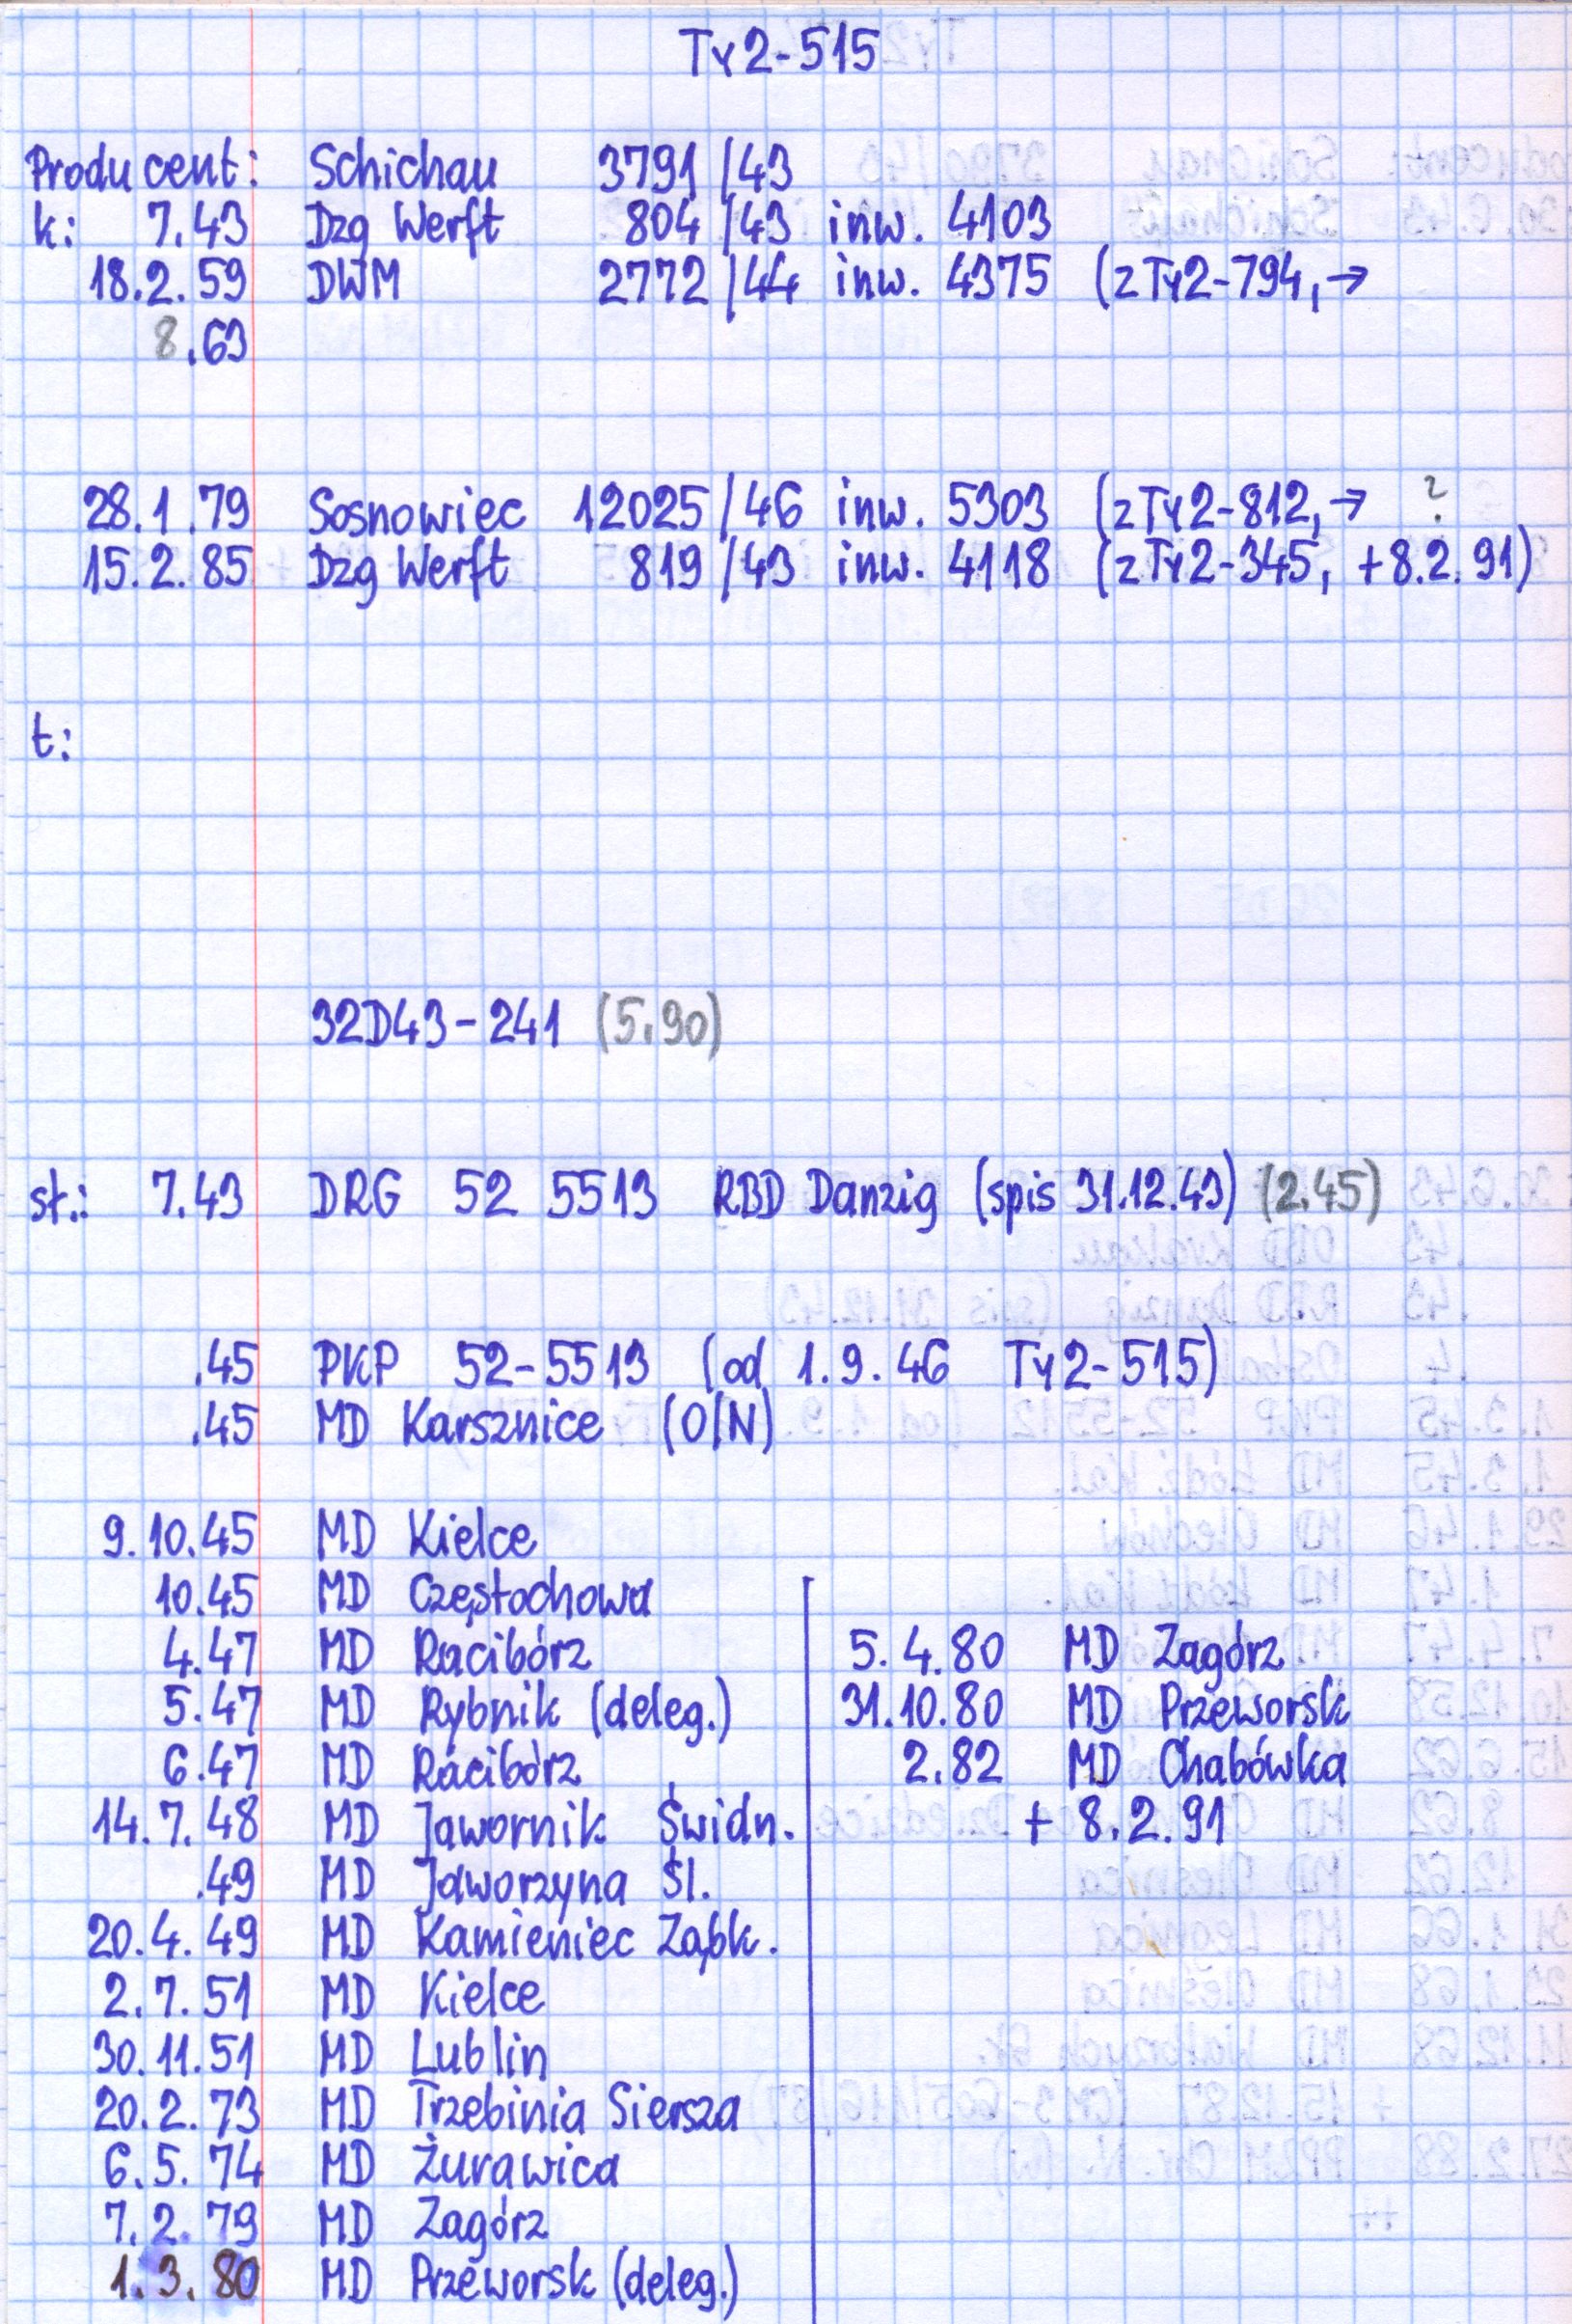 Ty2-515
Producent: Schichau 3791/43
k: 7.43 Dzg Werft 804/43 inw. 4103
18.2.59 DWM 2772/44 inw. 4375 (z Ty2-794, →
8.63
28.1.79 Sosnowiec 12025/46 inw. 5303 (z Ty2-812, → ?
15.2.85 Dzg Werft 819/43 inw. 4118 (z Ty2-345, +8.2.91)
t:
32D43-241 (5.90)
st.: 7.43 DRG 52 5513 RBD Danzig (spis 31.12.43) (2.45)
.45 PKP 52-5513 (od 1.9.46 Ty2-515)
.45 MD Karsznice (O/N)
9.10.45 MD Kielce
10.45 MD Częstochowa
4.47 MD Racibórz
5.47 MD Rybnik (deleg.)
6.47 MD Racibórz
14.7.48 MD Jawornik Świdn.
.49 MD Jaworzyna Śl.
20.4.49 MD Kamieniec Ząbk.
2.7.51 MD Kielce
30.11.51 MD Lublin
20.2.73 MD Trzebinia Siersza
6.5.74 MD Żurawica
7.2.79 MD Zagórz
1.3.80 MD Przeworsk (deleg.)
5.4.80 MD Zagórz
31.10.80 MD Przeworsk
2.82 MD Chabówka
+ 8.2.91